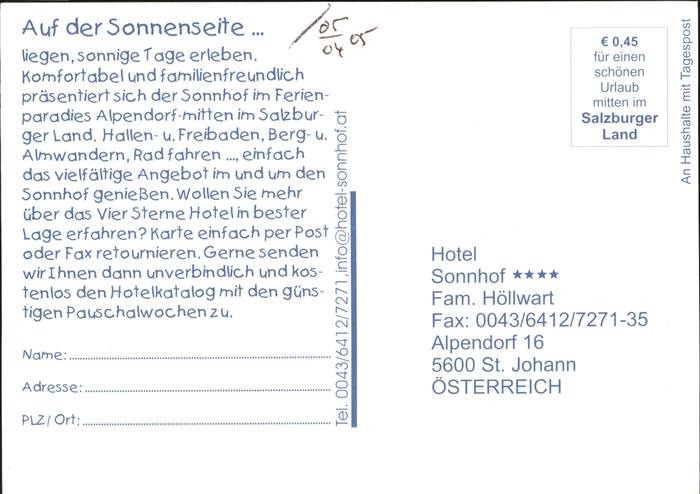 Auf der Sonnenseite ...
liegen, sonnige Tage erleben.
Komfortabel und familienfreundlich
präsentiert sich der Sonnhof im Ferien-
paradies Alpendorf-mitten im Salzbur-
ger Land. Hallen- u. Freibaden, Berg- u.
Almwandern, Rad fahren ..., einfach
das vielfältige Angebot im und um den
Sonnhof genießen. Wollen Sie mehr
über das Vier Sterne Hotel in bester
Lage erfahren? Karte einfach per Post
oder Fax retournieren. Gerne senden
wir Ihnen dann unverbindlich und kos-
tenlos den Hotelkatalog mit den güns-
tigen Pauschalwochen zu.
Name:
Adresse:
PLZ/Ort:
Tel. 0043/6412/7271,info@hotel-sonnhof.at
05
04 05
€ 0,45
für einen
schönen
Urlaub
mitten im
Salzburger
Land
An Haushalte mit Tagespost
Hotel
Sonnhof ★★★★
Fam. Höllwart
Fax: 0043/6412/7271-35
Alpendorf 16
5600 St. Johann
ÖSTERREICH